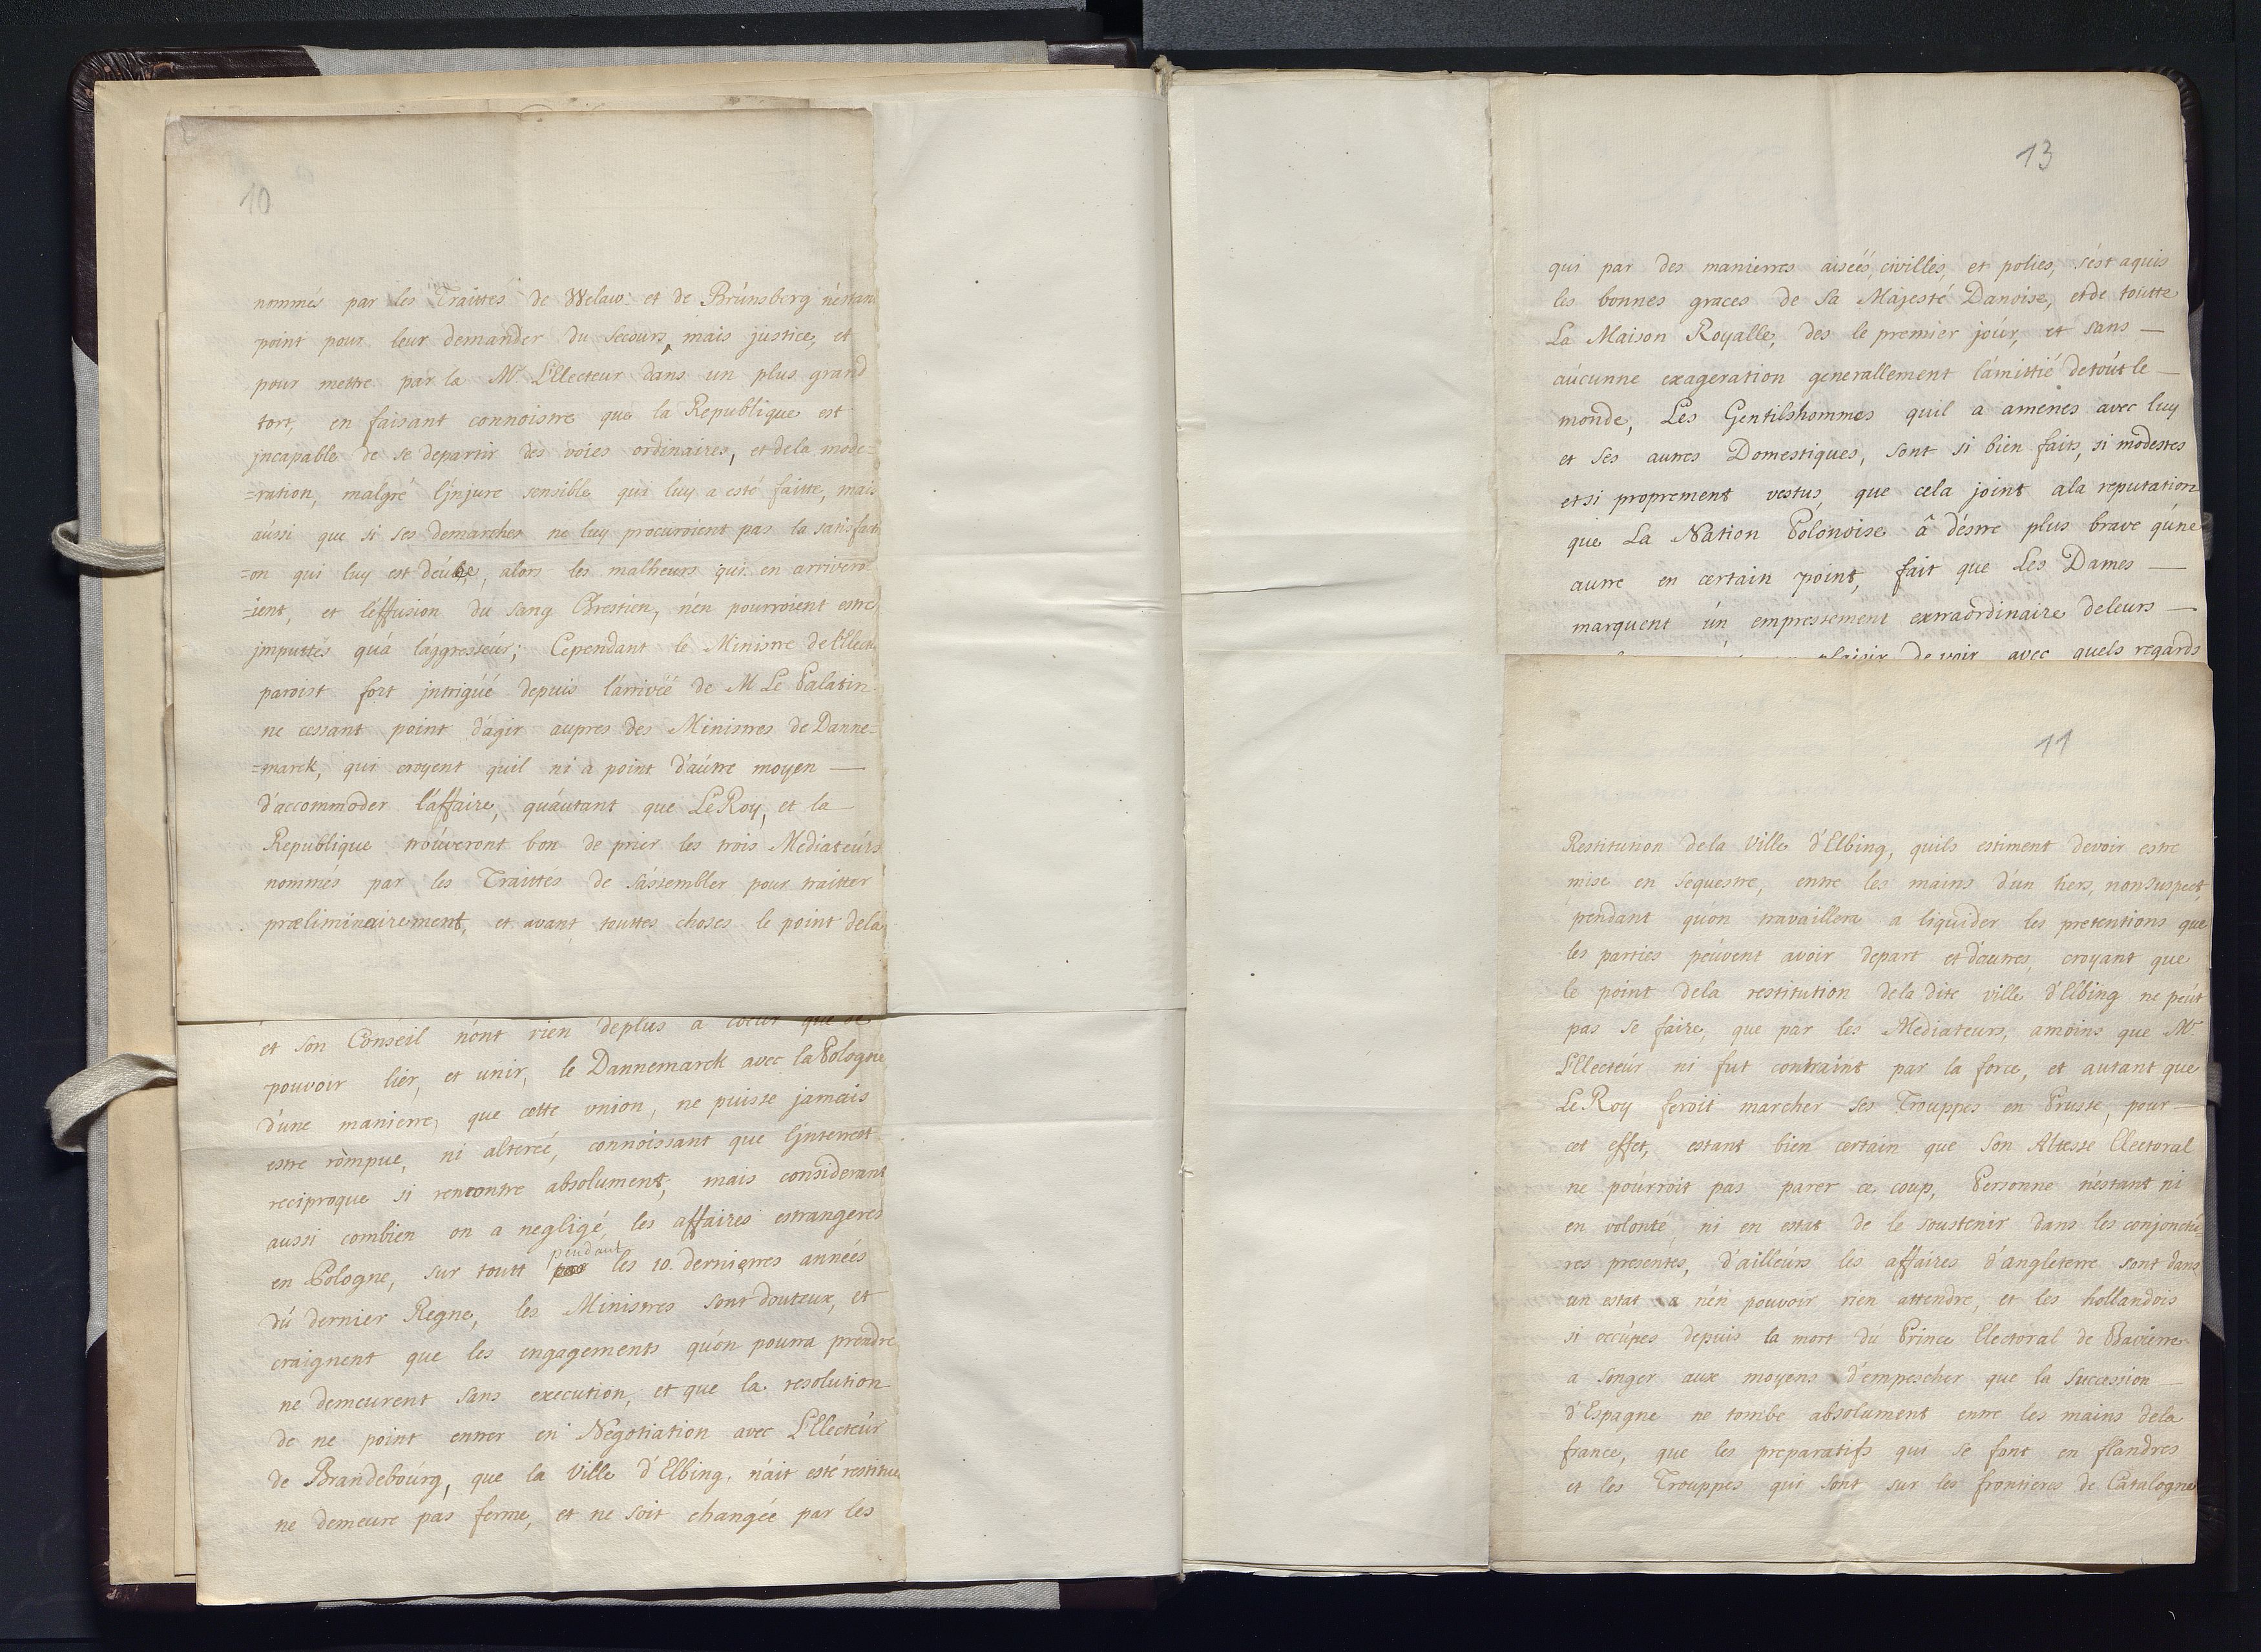 10
nommés par les Traittés de Welaw et de Brúnsberg n'estant
point pour leur demander du Secours, mais justice, et
pour mettre par la Mr L'Electeur dans un plus grand
tort, en faisant connoistre que la Republique est
jncapable de se departir des voies ordinaires, et dela mode=
=ration, malgré l'jnjure sensible qui luy a esté faitte, mais
aússi que si ses demarches ne luy procuroient pas la satisfacti
=on qui luy est deúe, alors les malheurs qui en arrivero=
=ient, et l'éffusion du sang Chrestien, n'en pourroient estre
jmputtés qu'á l'aggresseúr; Cependant le Ministre de l'Elect.
paroist fort jntrigúé depuis l'arrivéé de M Le Palatin
ne cessant point d'agir aupres des Ministres de Danne=
=marck, qui croyent quil ni a point d'aútre moyen —
d'accommoder l'áffaire, qu'autant que Le Roy, et la —
Republique troúveront bon de prier les trois Mediateúrs
nommés par les Traittés de s'assembler pour traitter
præliminairement, et avant touttes choses le point dela
et son Conseil n'ont rien deplus a coeur que de
pouvoir lier, et unir, le Dannemarck avec la Pologne
d'une manierre, que cette vnion, ne puisse jamais
estre rompue, ni altereé, connoissant que l'jnterest
reciproque si rencontre absolument, mais considerant
aussi combien on a negligé, les affaires estrangeres
en Pologne, sur toutt pendant les 10. dernierres annéés
dú dernier Regne, les Ministres sont douteux, et
craignent que les engagements qu'on pourra prendre
ne demeurent sans execution, et que la resolution
de ne point entrer en Negotiation avec L'Electeúr
de Brandeboúrg, que la Ville d'Elbing, n'ait esté restitue
ne demeure pas ferme, et ne soit changée par les
13
qui par des manierres aiseés, civilles, et polies, s'est aquis
les bonnes graces de Sa Majesté Danoise, et de toutte
La Maison Royalle, des le premier joúr, et sans —
aúcunne exageration generallement l'ámittié de toút le —
monde, Les Gentilshommes quil a amenes avec luy
et ses autres Domestiques, sont si bien faits, si modestes
et si proprement vestus, que cela joint ala reputation
que La Nation Polonoise â d'éstre plus brave qu'une
autre en certain point, fait que Les Dames —
marquent ún empressement extraordinaire deleurs —
plaisir de voir avec quels regards
11
Restitution dela Ville d'Elbing, quils estiment devoir estre
mise en sequestre, entre les mains d'un tiers, non suspect,
pendant qu'on travaillera a liquider les pretentions que
les parties peúvent avoir depart et d'autres, croyant que
le point dela restitution dela dite ville d'Elbing ne peút
pas se faire, que par les Mediateurs, amoins que Mr
L'Electeúr ni fut contraint par la force, et autant que
Le Roy feroit marcher ses Trouppes en Prusse, pour —
cet effet, estant bien certain que Son Altesse Electoral
ne poúrroit pas parer ce coup, Personne n'estant ni
en volonté, ni en estat de le soustenir dans les conjonctú=
res presentes, d'ailleúrs les affaires d'angleterre sont dans
un estat a n'en pouvoir rien attendre, et les hollandois
si occúpes depuis la mort dú Prince Electoral de Bavierre
a songer aux moyens d'empescher que la Succession —
d'Espagne ne tombe absolument entre les mains dela
france, que les preparatifs qui se font en flandres
et les Trouppes qui sont sur les frontieres de Catalogne